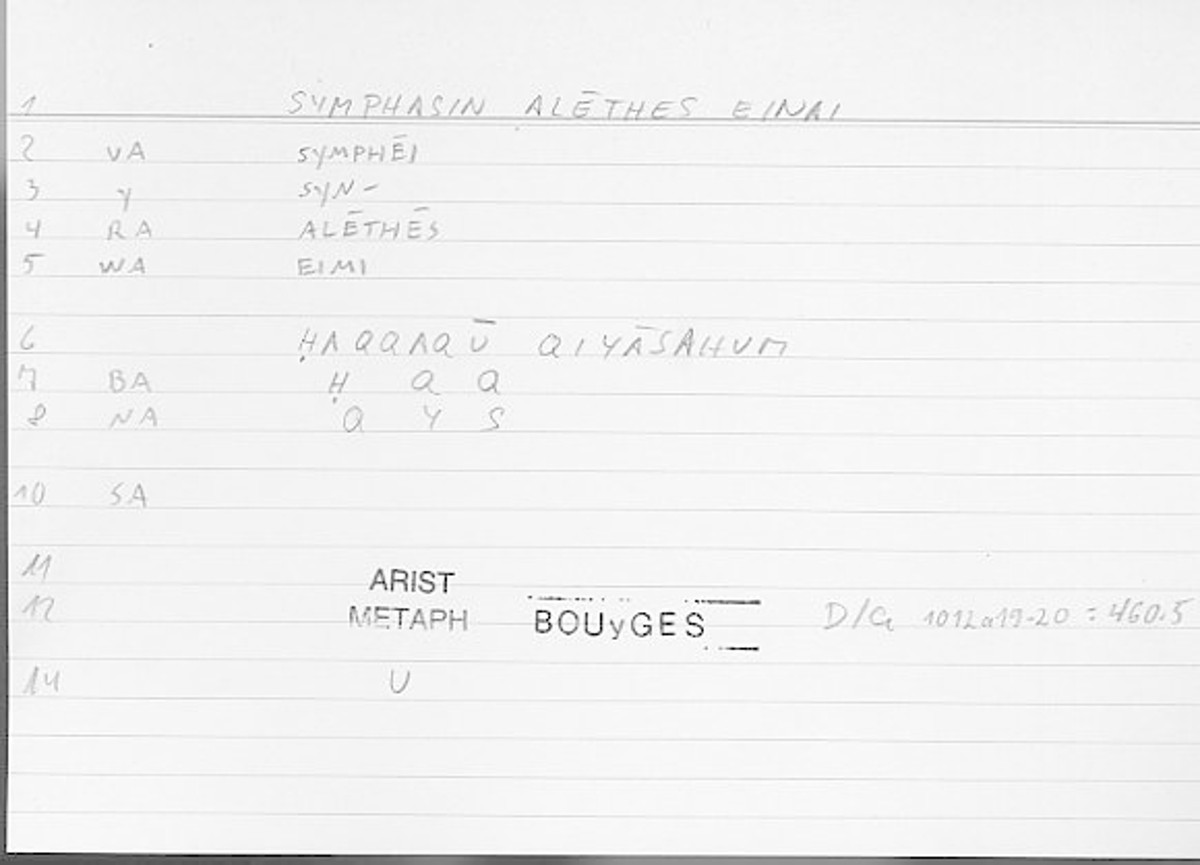 1 SYMPHASIN ALĒTHES EINAI
2 VA SYMPHĒI
3 Y SYN-
4 RA ALĒTHĒS
5 WA EIMI
6 ḤAQQAQŪ QIYĀSAHUM
7 BA Ḥ Q Q
8 NA Q Y S
10 SA
11 ARIST
12 METAPH BOUyGES D/G 1012a19-20 = 460.5
14 U